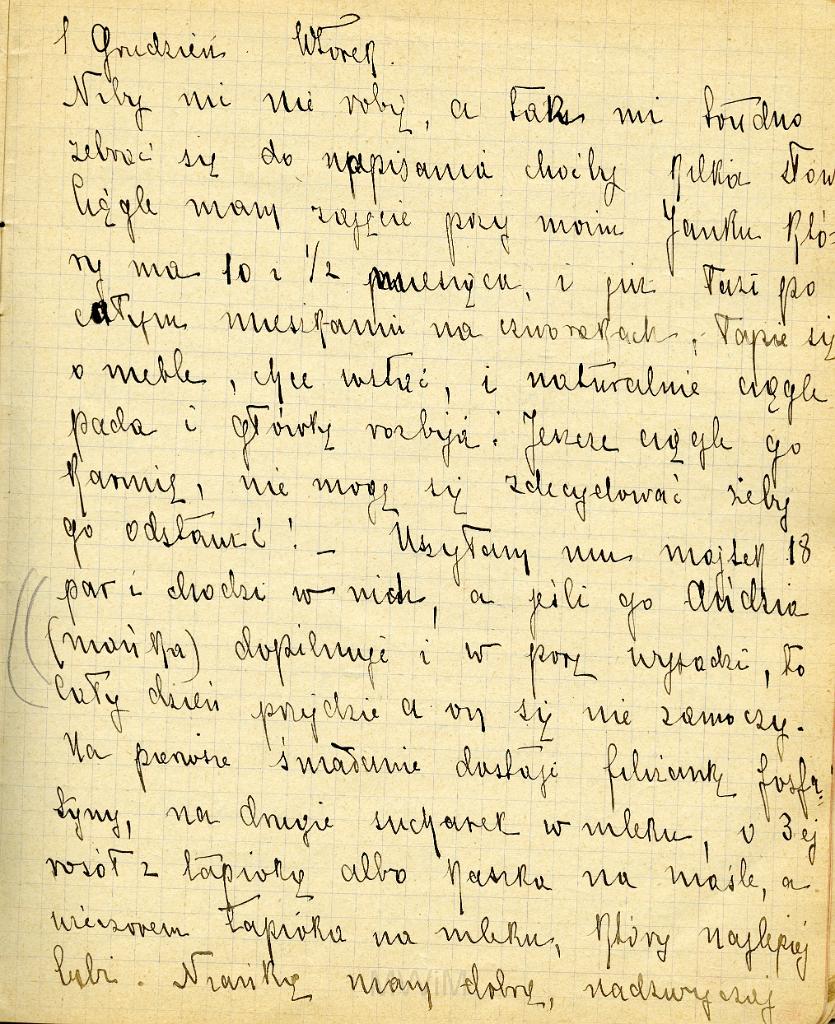 1 Grudzień. Wtorek.
Niby nic nie robię, a tak mi trudno
zebrać się do napisania choćby kilka słów
Ciągle mam zajęcie przy moim Janku któ=
ry ma 10 i 1/2 miesięcy, i już łazi po
całym mieszkaniu na czworakach, łapie się
o meble, chce wstać, i naturalnie ciągle
pada i główkę rozbija! Jeszcze ciągle go
karmię, nie mogę się zdecydować żeby
go odstawić! – Uszyłam mu majtek 18
par i chodzi w nich, a jeśli go
(mańka) dopilnuje i w porę wysadzi, to
cały dzień przejdzie a on się nie zamoczy.
Na pierwsze śniadanie dostaje filiżankę fosfa=
tyny, na drugie sucharek w mleku, o 3ej
rosół z tapioką albo kaszka na maśle, a
wieczorem tapioka na mleku, który najlepiej
lubi. Niańkę mam dobrą, nadzwyczaj